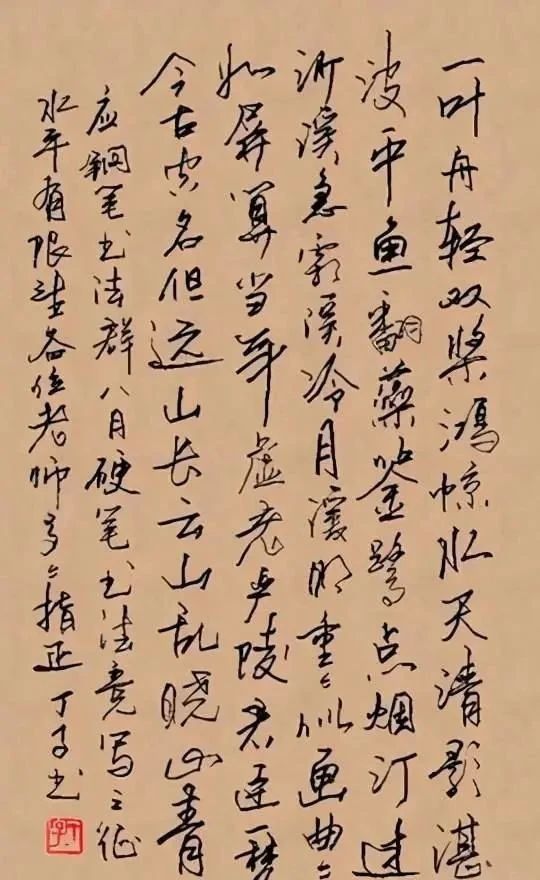 一叶舟轻双桨鸿惊水天清影湛
波平鱼翻藻鉴鹭点烟汀过
沙溪急霜溪冷月溪明重〻似画曲〻
如屏算当年虚老严陵君臣一梦
今古空名但远山长云山乱晓山青
应鋼笔书法群八月硬笔书法竞写之征
水平有限请各位老师多〻指正 丁子书